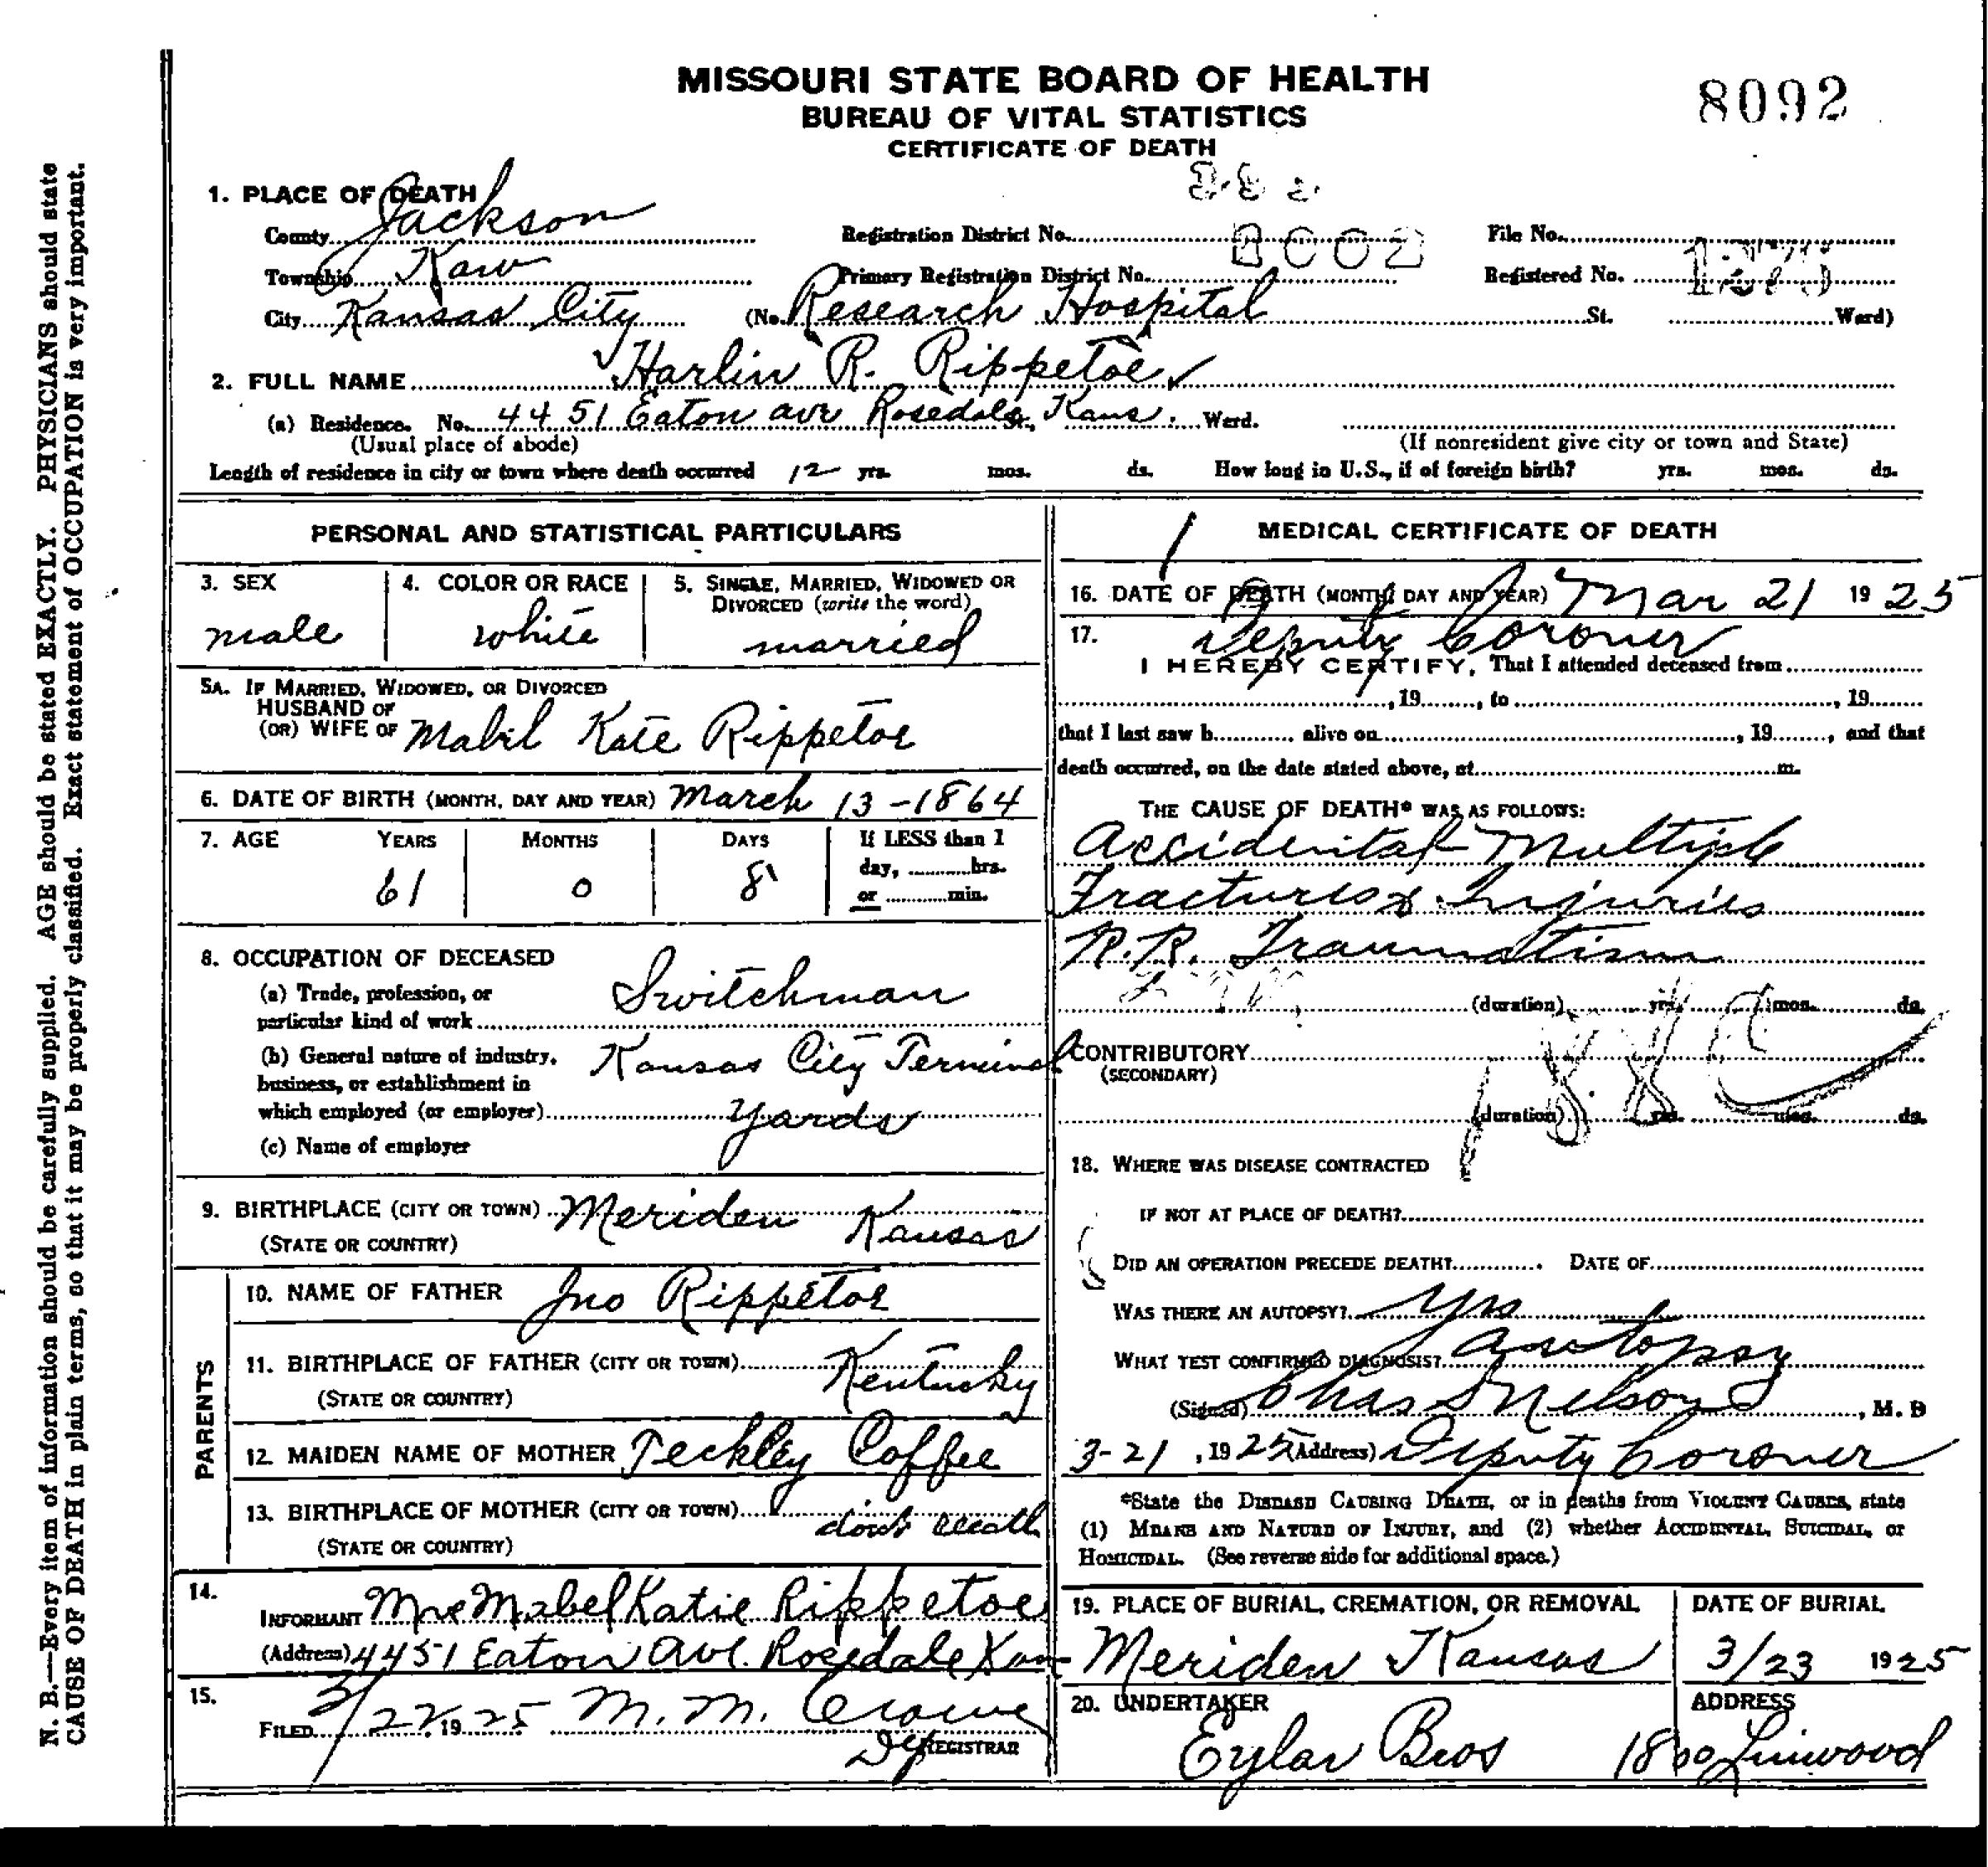 MISSOURI STATE BOARD OF HEALTH
BUREAU OF VITAL STATISTICS
CERTIFICATE OF DEATH
8092
1. PLACE OF DEATH
County Jackson Registration District No. File No.
Township Kaw Primary Registration District No. 1002 Registered No.
City Kansas City (No. Research Hospital St. Ward)
2. FULL NAME Harlin R. Rippetoe
(a) Residence. No. 4451 Eaton ave Rosedale St., Kans. Ward.
(Usual place of abode) (If nonresident give city or town and State)
Length of residence in city or town where death occurred 12 yrs. mos. ds. How long in U.S., if of foreign birth? yrs. mos. ds.
PERSONAL AND STATISTICAL PARTICULARS
3. SEX 4. COLOR OR RACE 5. SINGLE, MARRIED, WIDOWED OR
DIVORCED (write the word)
male white married
5A. IF MARRIED, WIDOWED, OR DIVORCED
HUSBAND OF
(OR) WIFE OF Mabel Kate Rippetoe
6. DATE OF BIRTH (MONTH, DAY AND YEAR) March 13-1864
7. AGE YEARS MONTHS DAYS If LESS than 1
day, hrs.
61 0 8 or min.
8. OCCUPATION OF DECEASED
(a) Trade, profession, or
particular kind of work Switchman
(b) General nature of industry,
business, or establishment in
which employed (or employer) Kansas City Terminal
Yards
(c) Name of employer
9. BIRTHPLACE (CITY OR TOWN) Meriden Kansas
(STATE OR COUNTRY)
PARENTS
10. NAME OF FATHER Jno Rippetoe
11. BIRTHPLACE OF FATHER (CITY OR TOWN) Kentucky
(STATE OR COUNTRY)
12. MAIDEN NAME OF MOTHER Teckley Coffee
13. BIRTHPLACE OF MOTHER (CITY OR TOWN)
(STATE OR COUNTRY)
14.
INFORMANT Mrs Mabel Katie Rippetoe
(Address) 4451 Eaton Ave. Rosedale Kan
15.
FILED 3/22 1925 M. M. Crowe
Dep REGISTRAR
MEDICAL CERTIFICATE OF DEATH
16. DATE OF DEATH (MONTH, DAY AND YEAR) Mar 21 1925
17. Deputy Coroner
I HEREBY CERTIFY, That I attended deceased from
, 19 , to , 19
that I last saw h alive on , 19 , and that
death occurred, on the date stated above, at m.
THE CAUSE OF DEATH* WAS AS FOLLOWS:
Accidental Multiple
Fractures & Injuries
R.R. Traumatism
(duration) yrs. mos. ds.
CONTRIBUTORY
(SECONDARY)
188C
(duration) yrs. mos. ds.
18. WHERE WAS DISEASE CONTRACTED
IF NOT AT PLACE OF DEATH?
DID AN OPERATION PRECEDE DEATH? DATE OF
WAS THERE AN AUTOPSY? Yes
WHAT TEST CONFIRMED DIAGNOSIS? autopsy
(Signed) Chas S Nelson, M. D
3-21, 1925 (Address) Deputy Coroner
*State the DISEASE CAUSING DEATH, or in deaths from VIOLENT CAUSES, state
(1) MEANS AND NATURE OF INJURY, and (2) whether ACCIDENTAL, SUICIDAL, or
HOMICIDAL. (See reverse side for additional space.)
19. PLACE OF BURIAL, CREMATION, OR REMOVAL DATE OF BURIAL
Meriden Kansas 3/23 1925
20. UNDERTAKER ADDRESS
Eylar Bros 1800 Linwood
N. B.—Every item of information should be carefully supplied. AGE should be stated EXACTLY. PHYSICIANS should state
CAUSE OF DEATH in plain terms, so that it may be properly classified. Exact statement of OCCUPATION is very important.